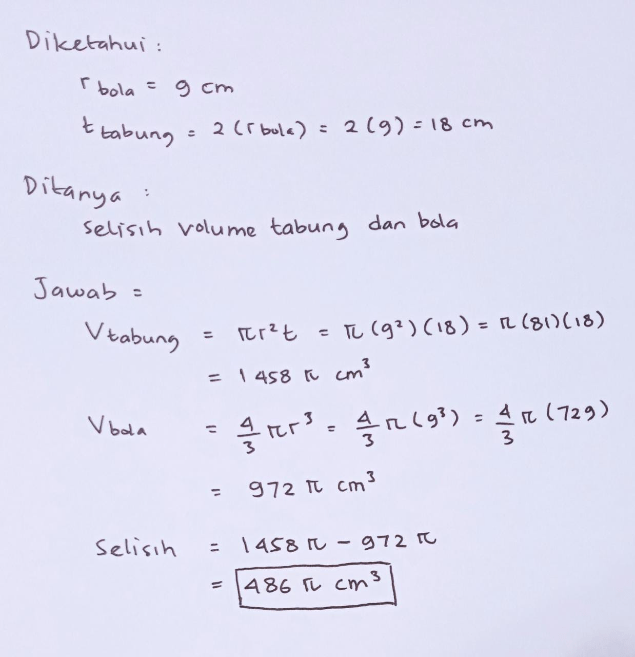 Diketahui :
r bola = 9 cm
t tabung = 2 (r bola) = 2 (9) = 18 cm
Ditanya :
selisih volume tabung dan bola
Jawab =
V tabung = πr²t = π (9²) (18) = π (81)(18)
= 1458 π cm³
V bola = 4/3 πr³ = 4/3 π (9³) = 4/3 π (729)
= 972 π cm³
Selisih = 1458 π - 972 π
= 486 π cm³